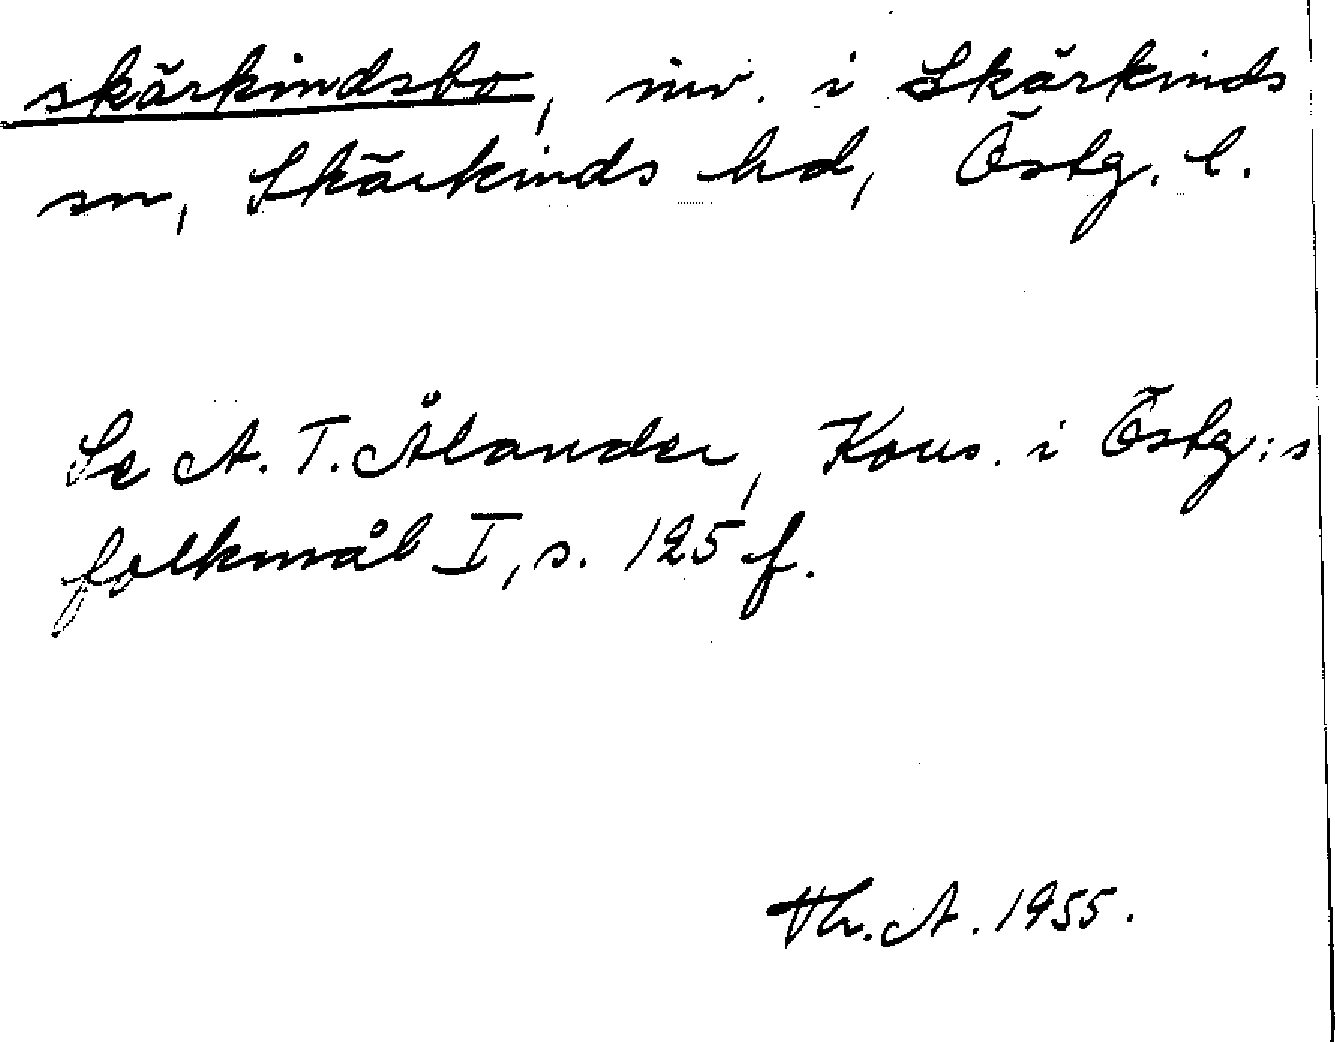 skärkindsbo, inv. i Skärkinds
sn, Skärkinds hd, Östg. l.
Se A. T. Ålander, Kons. i Östg:s
folkmål I, s. 125 f.
Th. A. 1955.